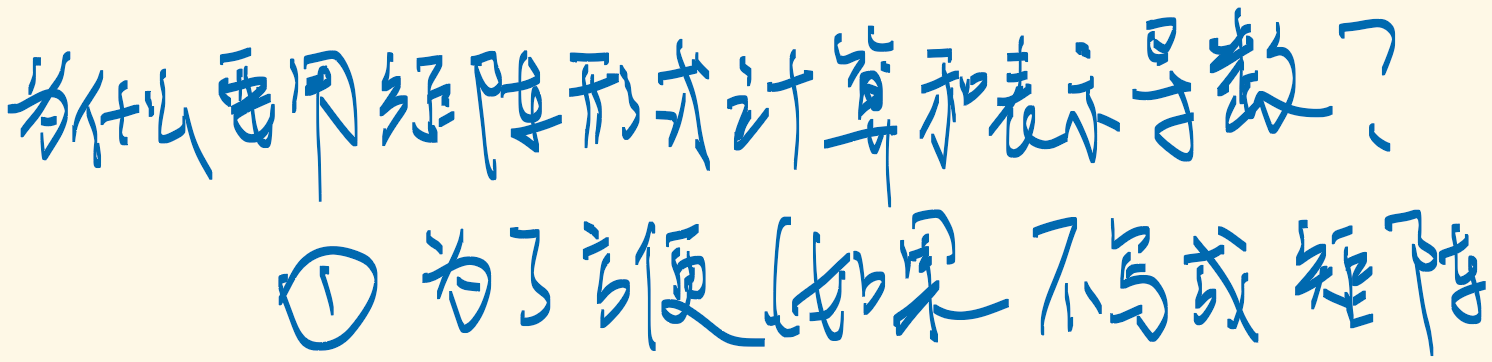 为什么要用矩阵形式计算和表示导数？
① 为了方便（如果不写成矩阵